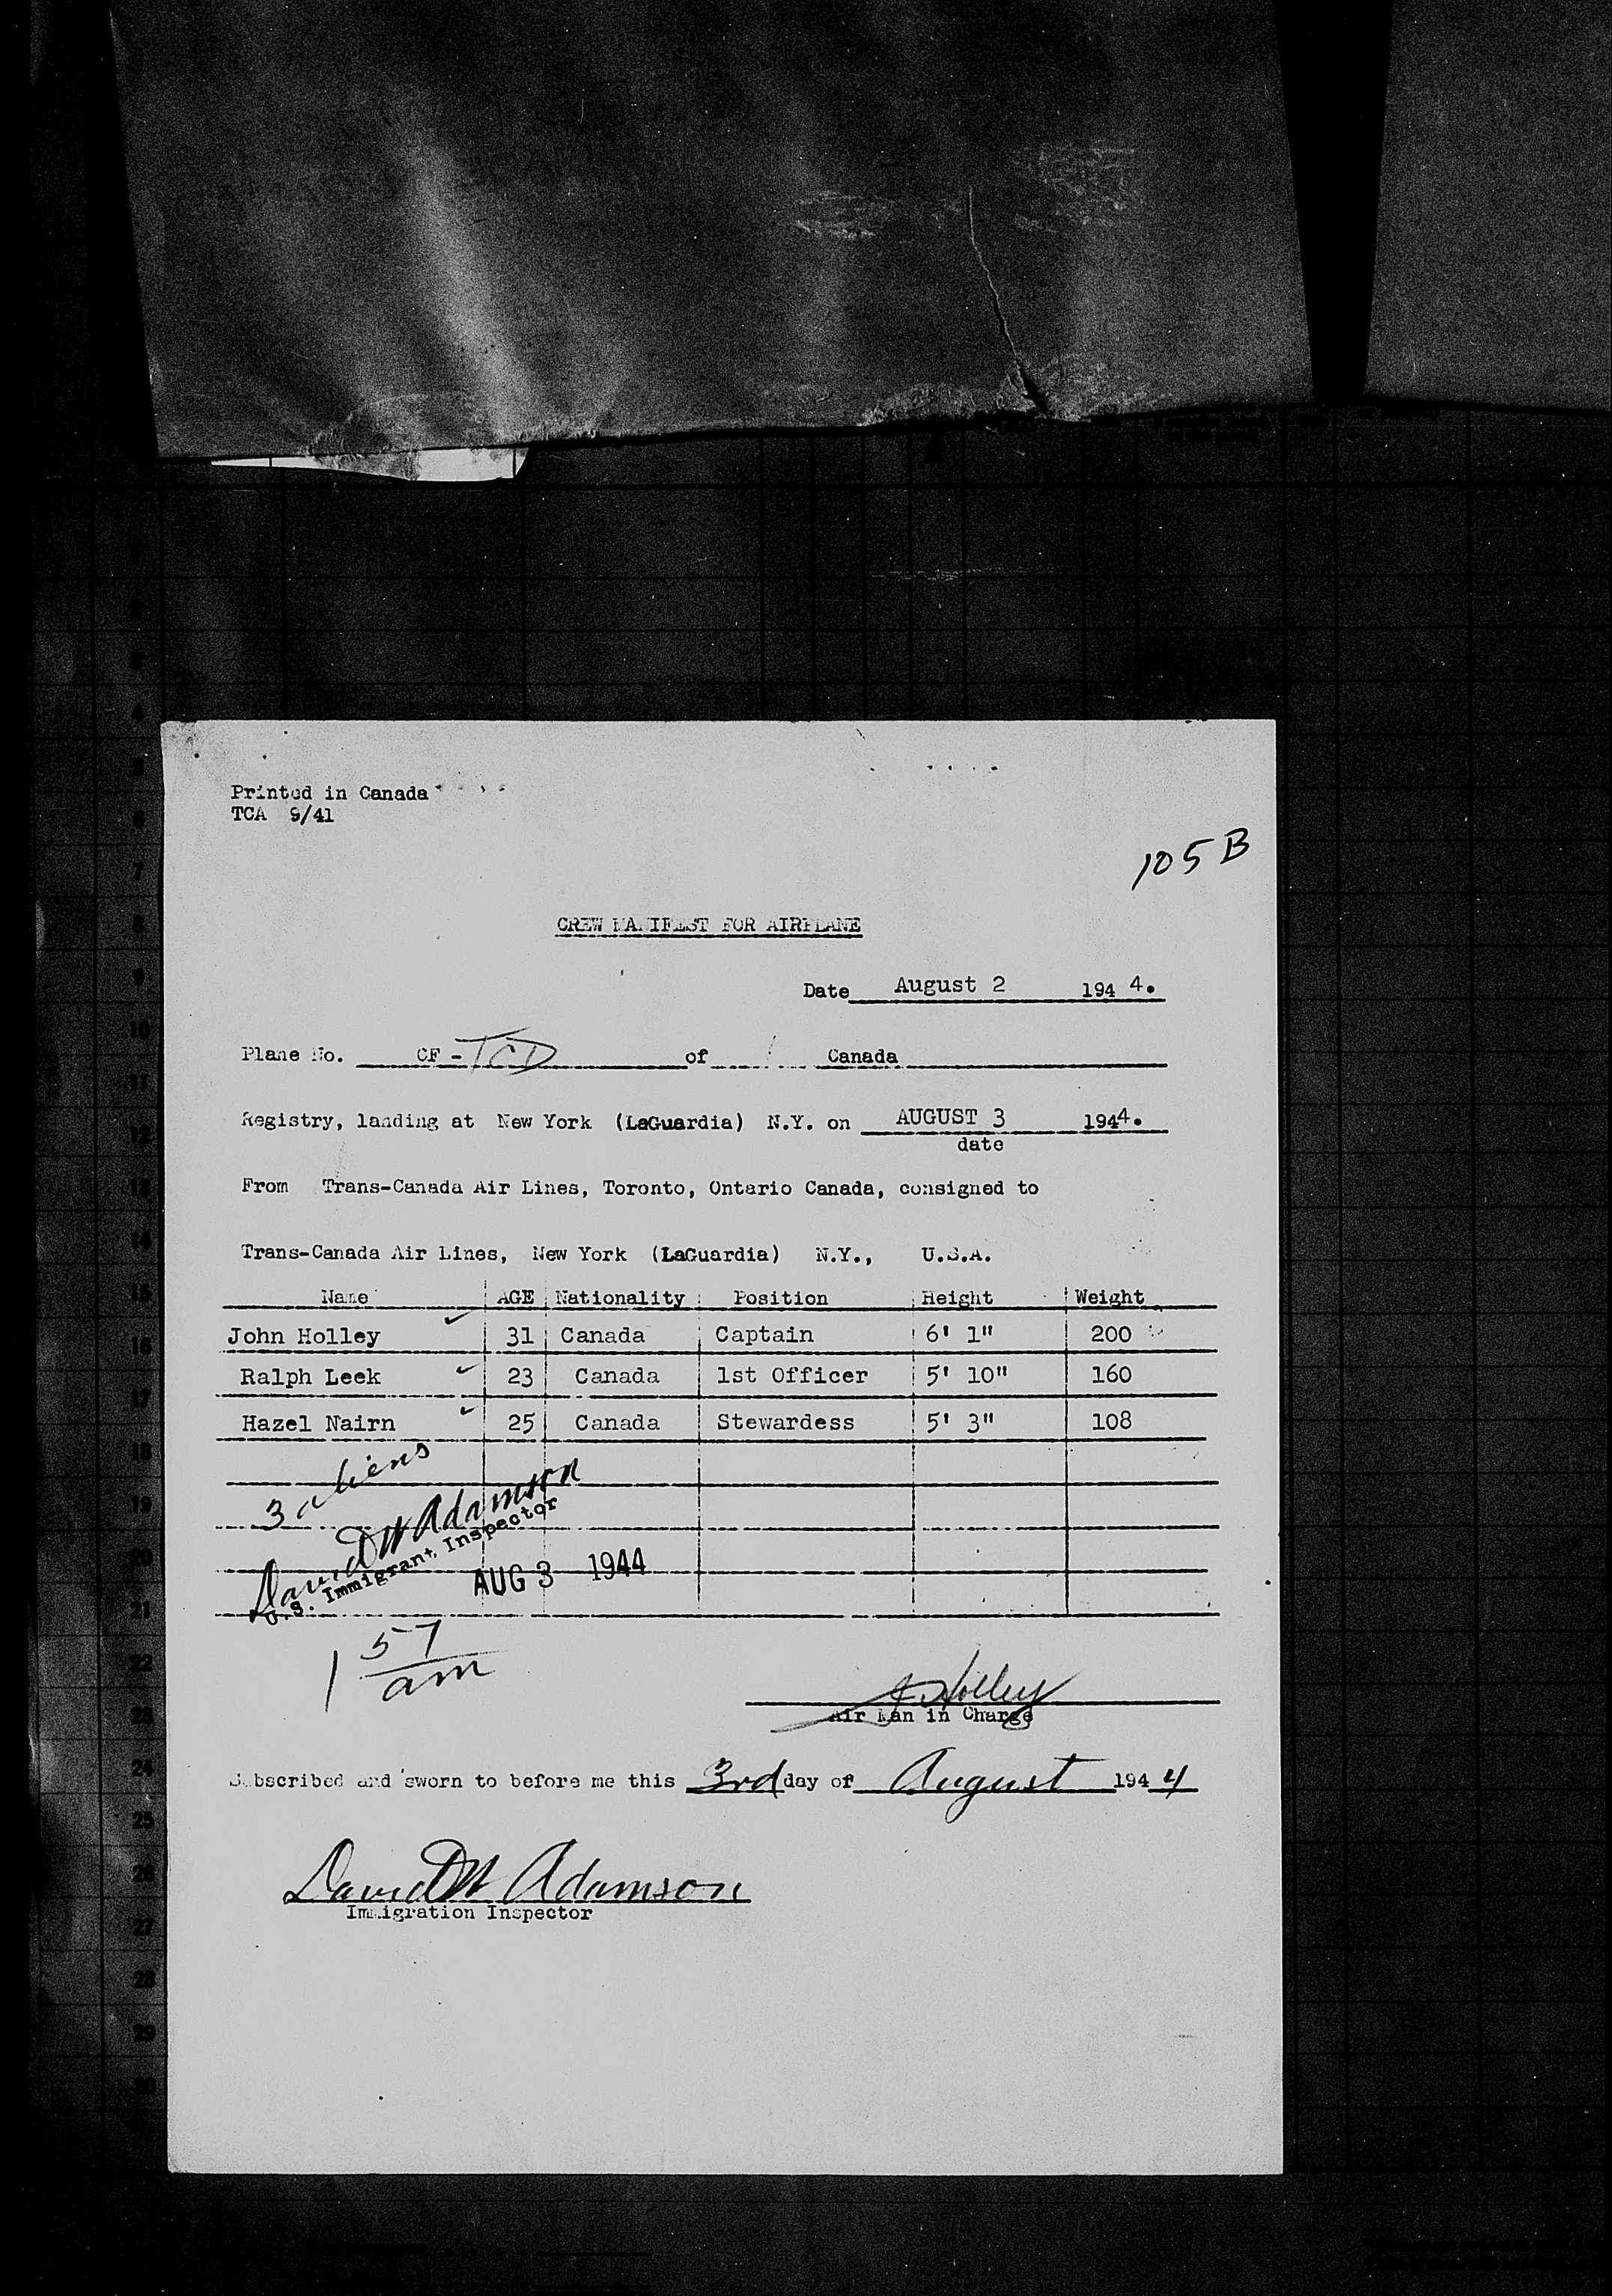 Printed in Canada
TCA 9/41
105 B
CREW MANIFEST FOR AIRPLANE
Date August 2 1944.
Plane No. CF-TCD of Canada
Registry, landing at New York (LaGuardia) N.Y. on AUGUST 3 1944.
date
From Trans-Canada Air Lines, Toronto, Ontario Canada, consigned to
Trans-Canada Air Lines, New York (LaGuardia) N.Y., U.S.A.
Name AGE Nationality Position Height Weight
John Holley ✓ 31 Canada Captain 6' 1" 200
Ralph Leek ✓ 23 Canada 1st Officer 5' 10" 160
Hazel Nairn ✓ 25 Canada Stewardess 5' 3" 108
3 aliens
David W Adamson
U.S. Immigrant Inspector
AUG 3 1944
1 57 am
J Holley
Air Man in Charge
Subscribed and sworn to before me this 3rd day of August 1944
David W Adamson
Immigration Inspector
4
5
6
7
8
9
10
11
12
13
14
15
16
17
18
19
20
21
22
23
24
25
26
27
28
29
30